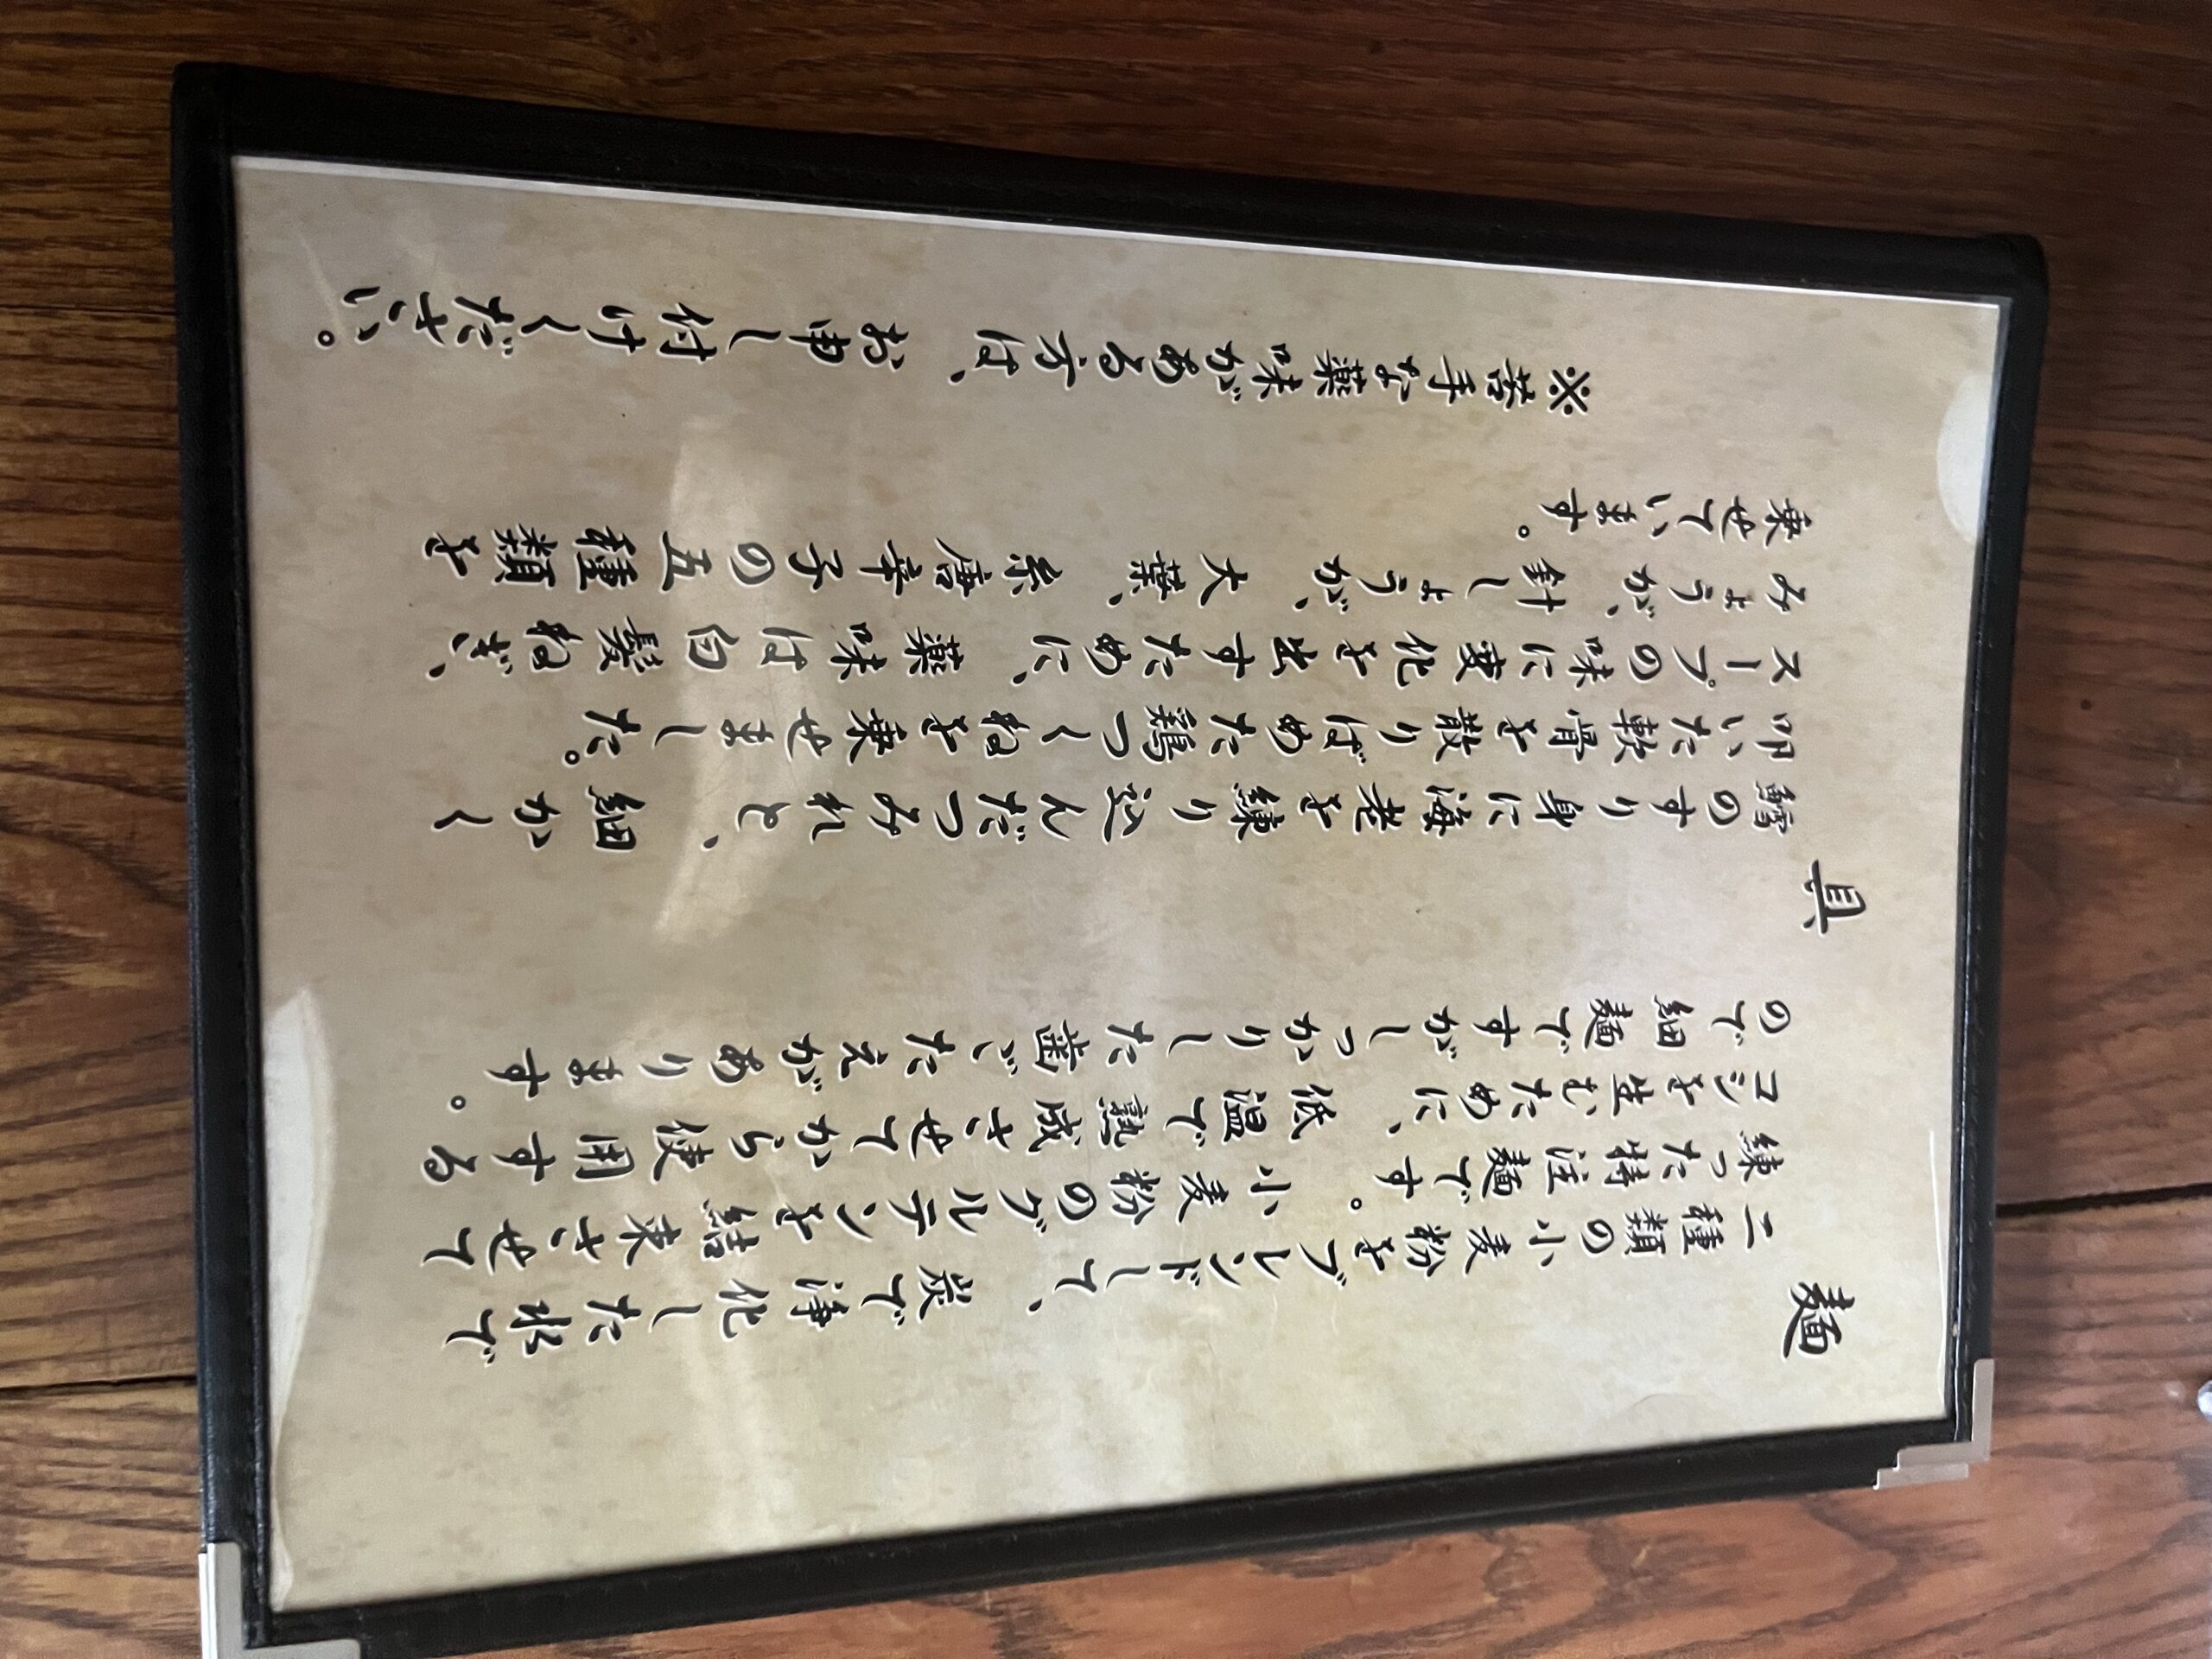 麺
二種類の小麦粉をブレンドして、炭で浄化した水で
練った特注麺です。小麦粉のグルテンを結束させて
コシを生むために、低温で熟成させてから使用する
ので細麺ですがしっかりした歯ごたえがあります。
具
鱈のすり身に海老を練り込んだつみれと、細かく
叩いた軟骨を散りばめた鶏つくねを乗せました。
スープの味に変化を出すために、薬味は白髪ねぎ、
みょうが、針しょうが、大葉、糸唐辛子の五種類を
乗せています。
※苦手な薬味がある方は、お申し付けください。